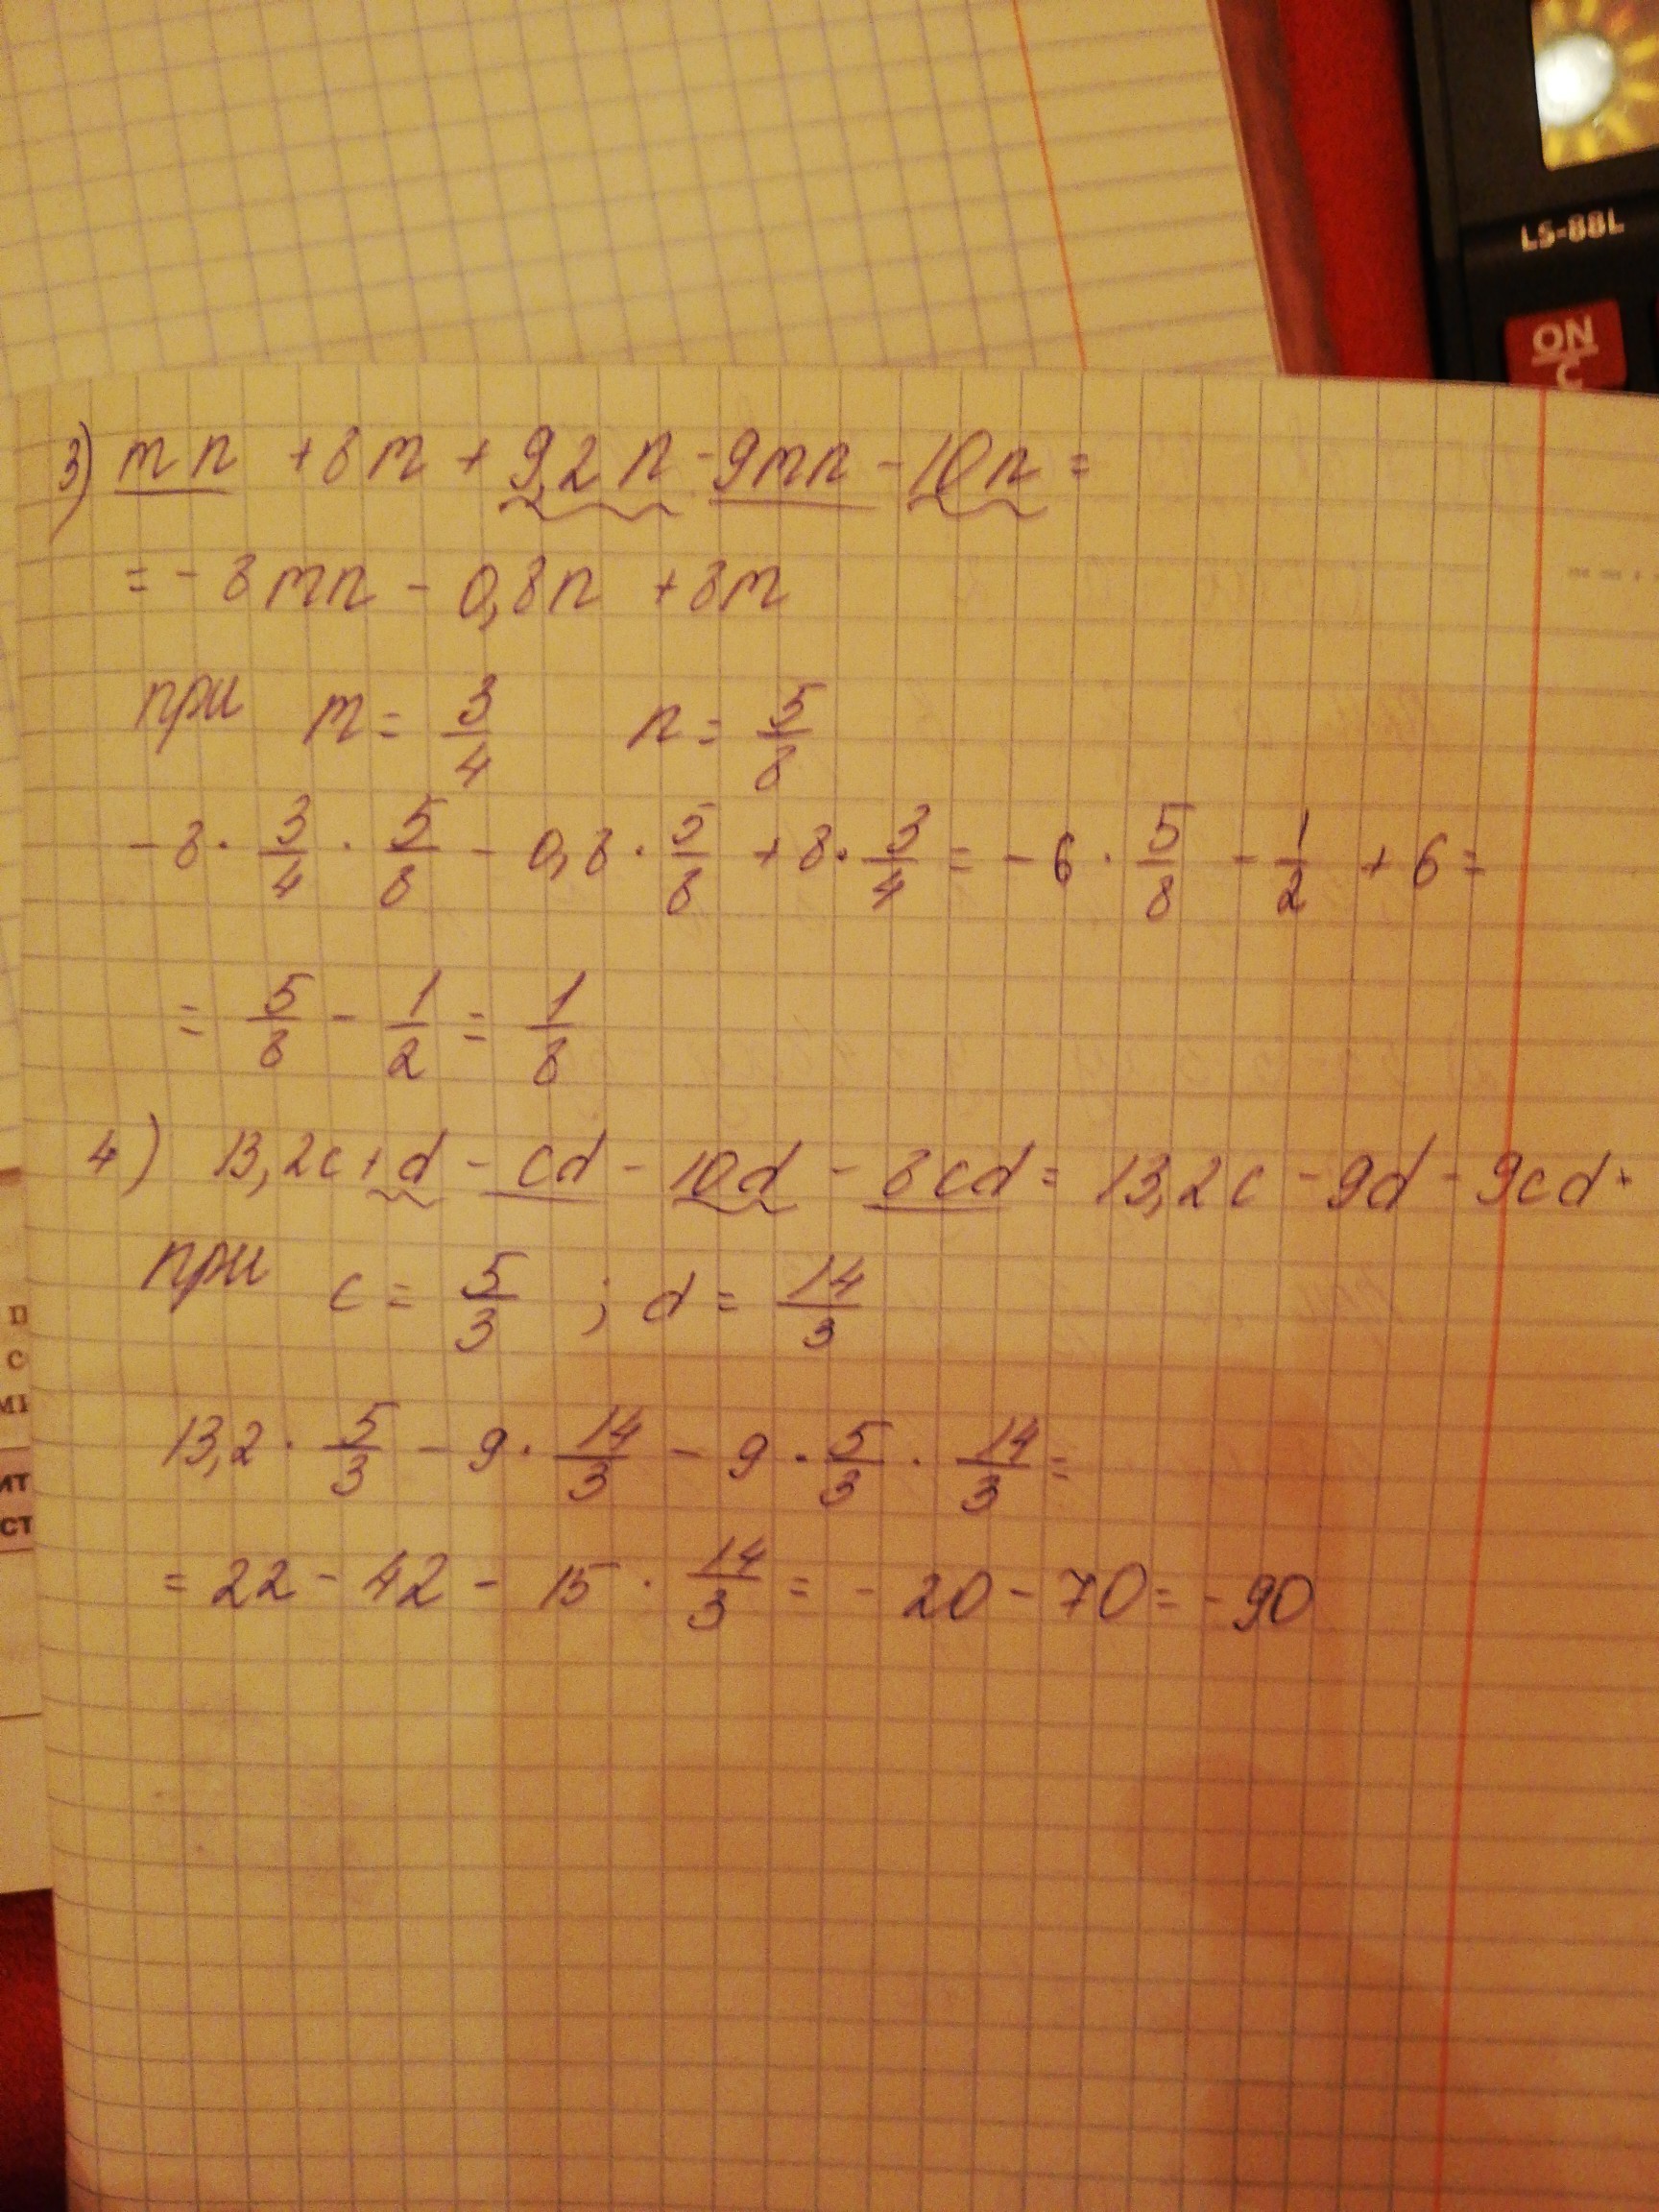 LS-88L
ON
C
3) mn + 8m + 9,2n - 9mn - 10n =
= - 8mn - 0,8n + 8m
при m = 3/4 n = 5/8
- 8 · 3/4 · 5/8 - 0,8 · 5/8 + 8 · 3/4 = - 6 · 5/8 - 1/2 + 6 =
= 5/8 - 1/2 = 1/8
4) 13,2c + d - cd - 10d - 8cd = 13,2c - 9d - 9cd
при c = 5/3 ; d = 14/3
13,2 · 5/3 - 9 · 14/3 - 9 · 5/3 · 14/3 =
= 22 - 42 - 15 · 14/3 = - 20 - 70 = - 90